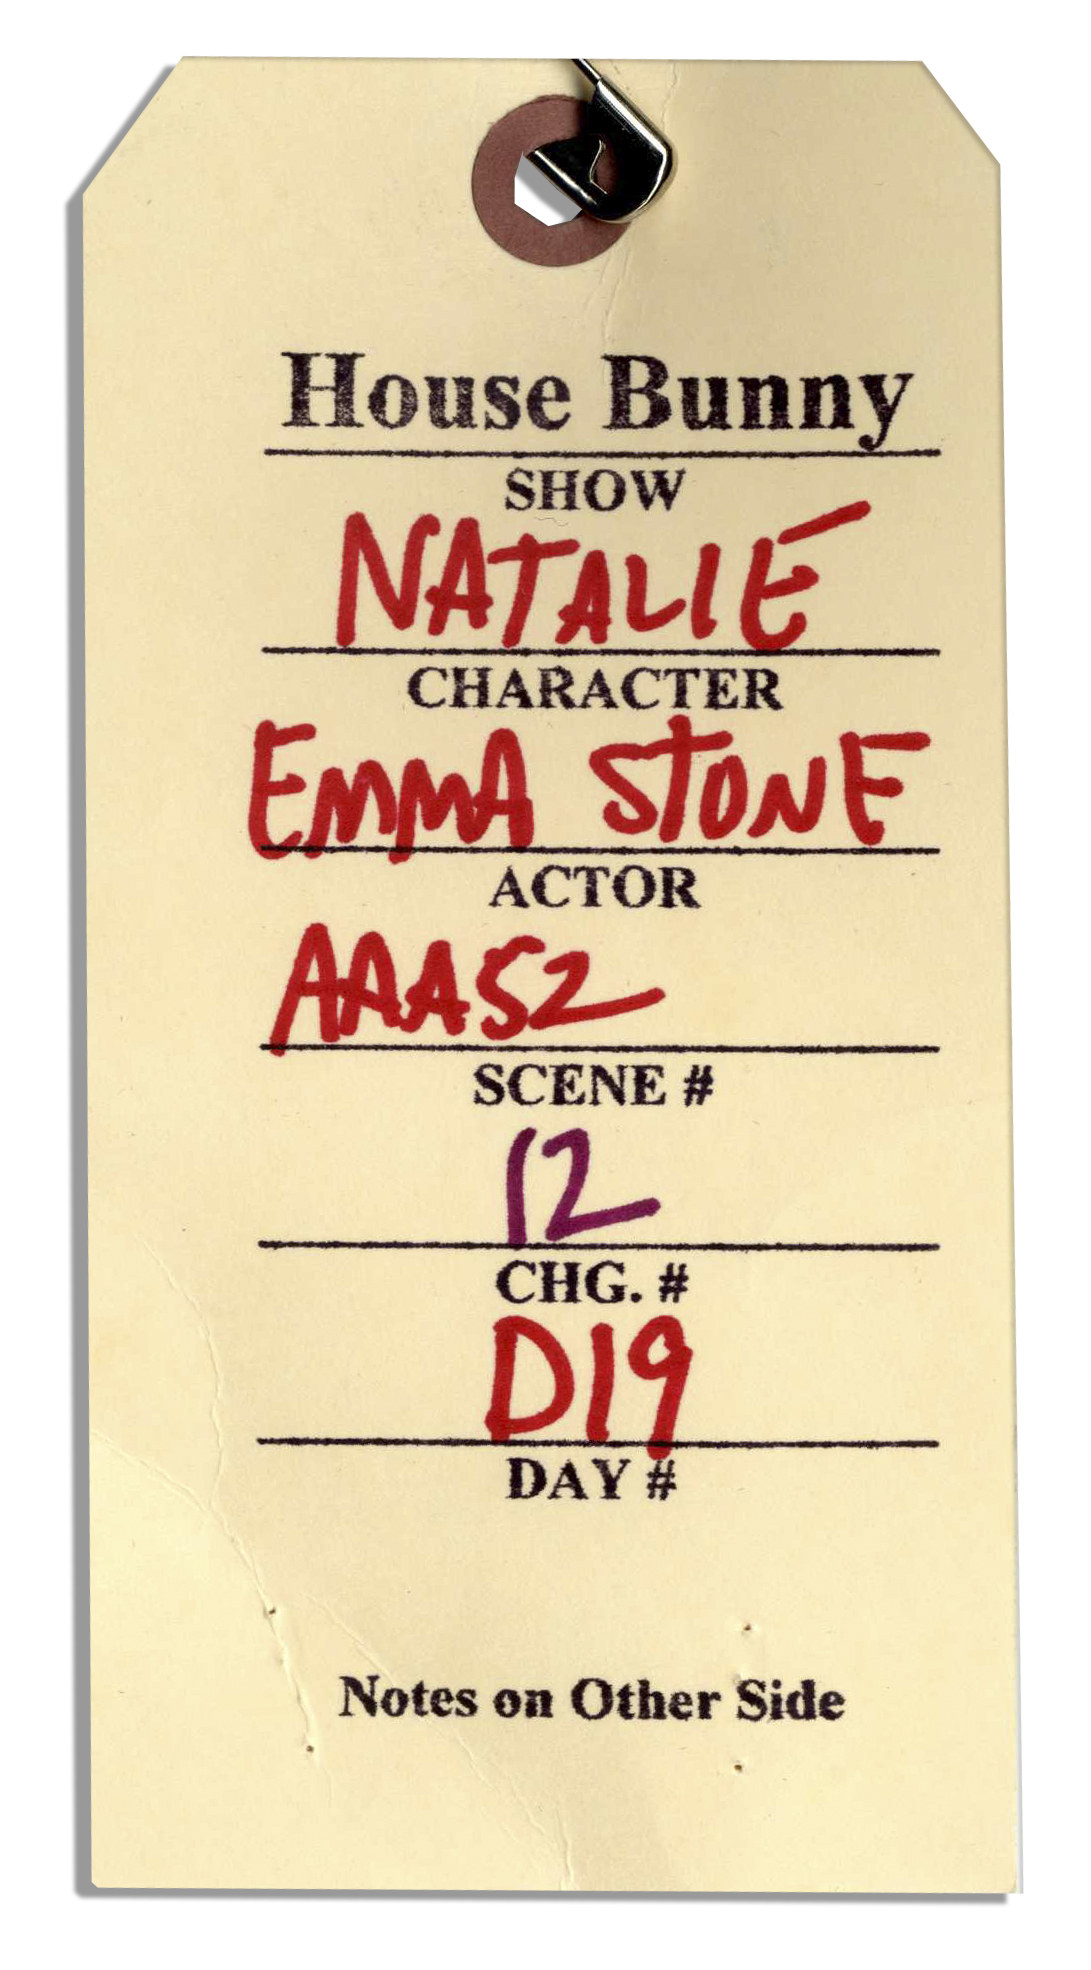 House Bunny
SHOW
NATALIE
CHARACTER
EMMA STONE
ACTOR
AAA52
SCENE #
12
CHG. #
D19
DAY #
Notes on Other Side